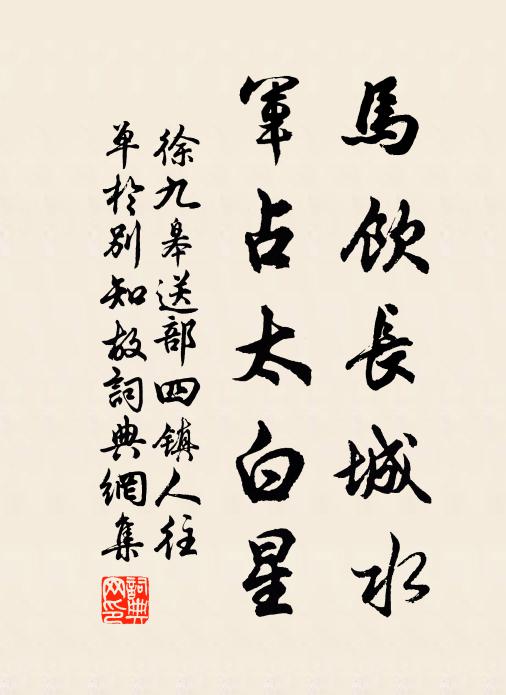 馬飲長城水
軍占太白星
徐九皋送部四鎮人往
单於別知故詞典網集
詞典网印